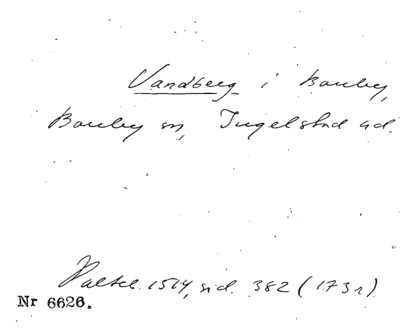 Vandberg i Bouby,
Bouby sn, Ingelstad hd.
Palteb. 1514, sid. 382 (173r)
Nr 6626.